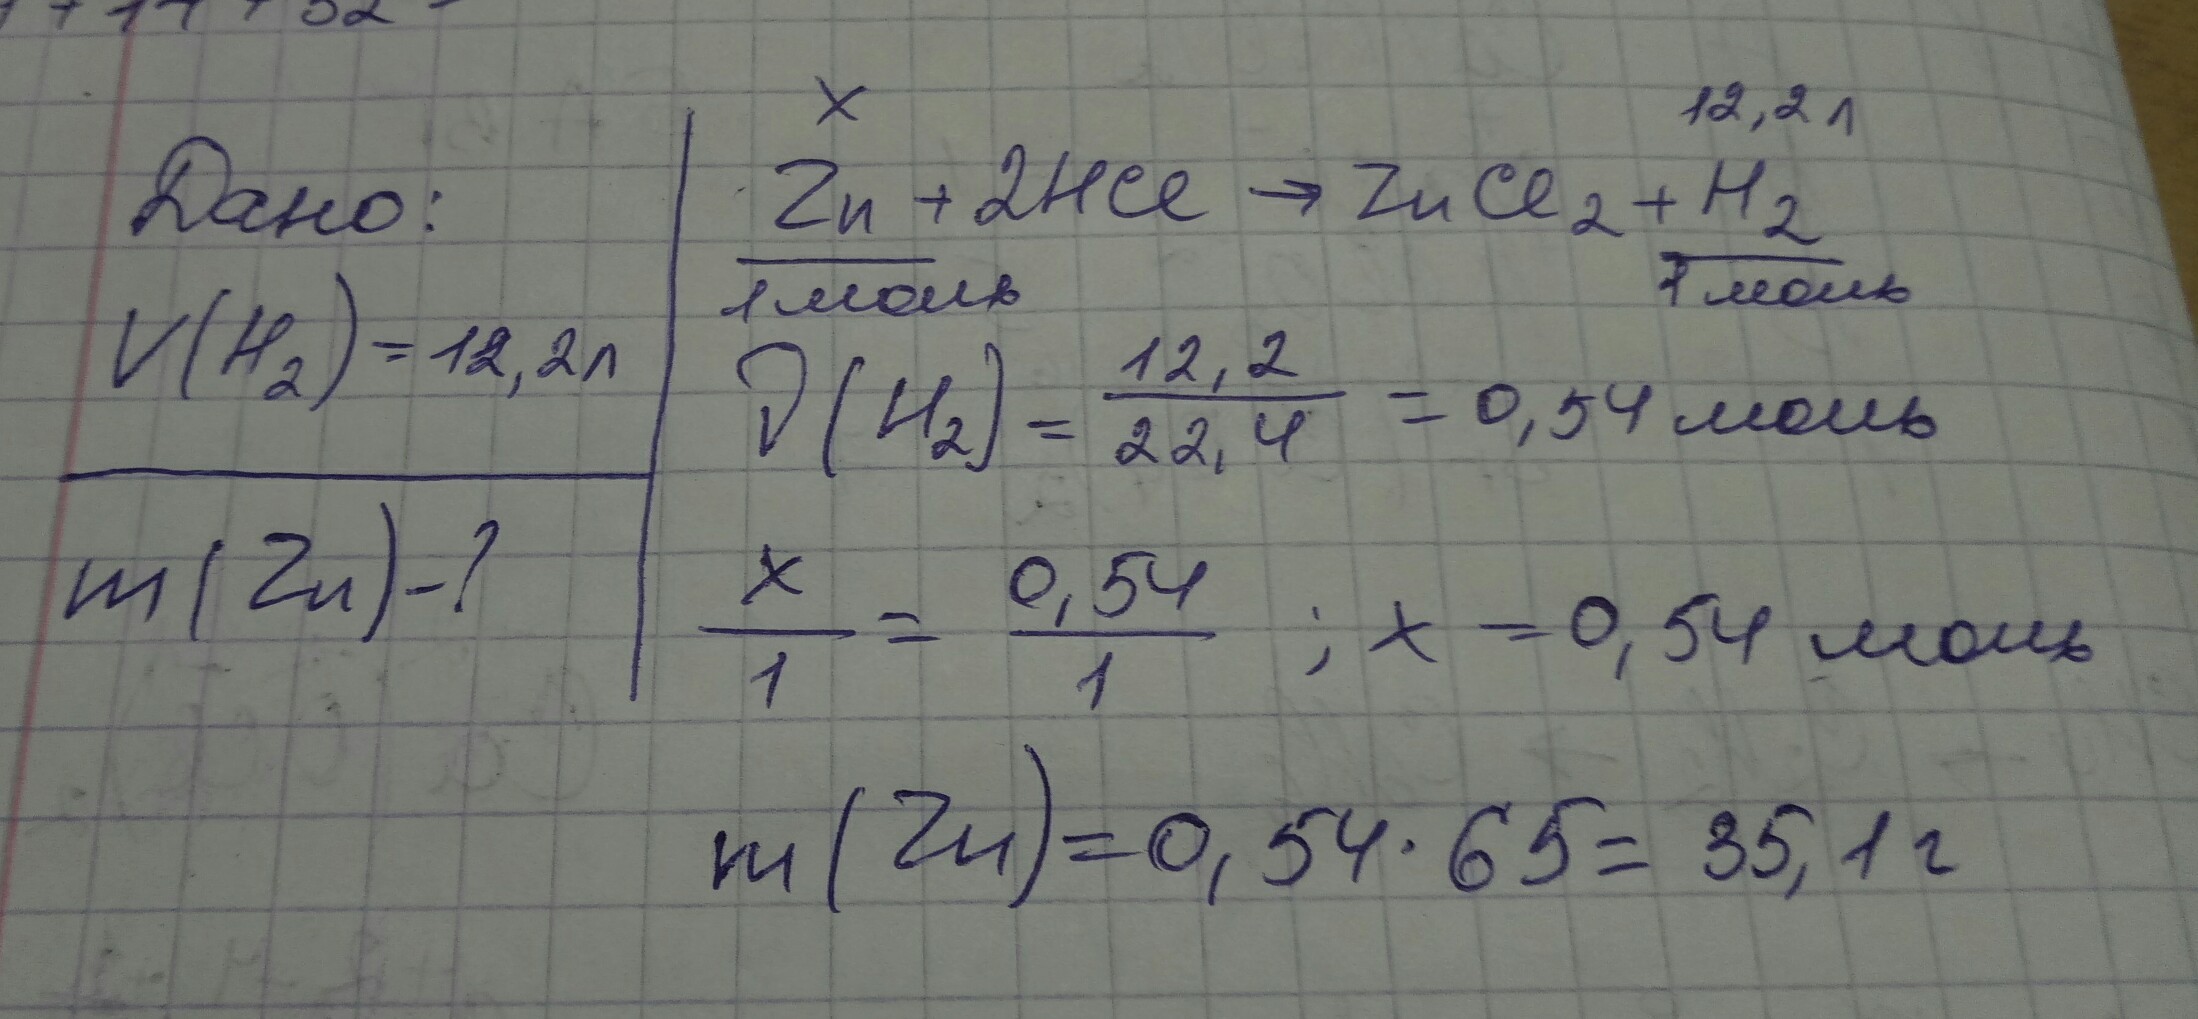 + 14 + 32
Дано:
V(H₂) = 12,2 л
m(Zn) - ?
x 12,2 л
Zn + 2HCl → ZnCl₂ + H₂
1 моль 1 моль
ν(H₂) = 12,2 / 22,4 = 0,54 моль
x / 1 = 0,54 / 1 ; x = 0,54 моль
m(Zn) = 0,54 · 65 = 35,1 г